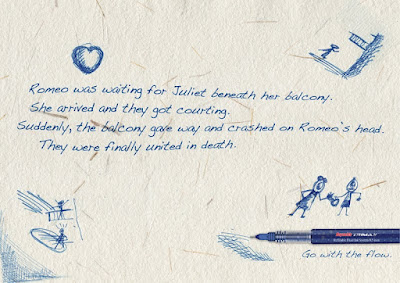 Romeo was waiting for Juliet beneath her balcony.
She arrived and they got courting.
Suddenly, the balcony gave way and crashed on Romeo's head.
They were finally united in death.
Go with the flow.